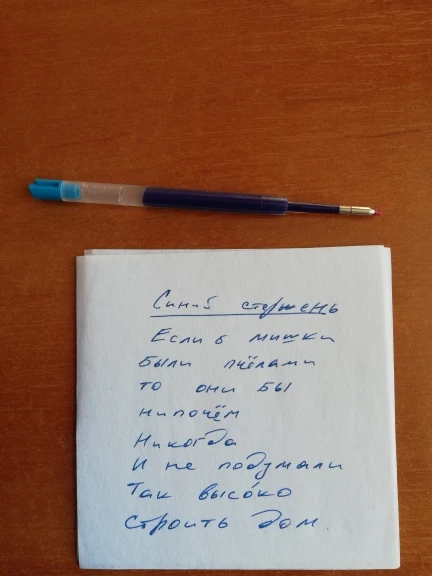 Синий стержень
Если б мишки
были пчёлами
то они бы
нипочём
Никогда
И не подумали
Так высо́ко
строить дом